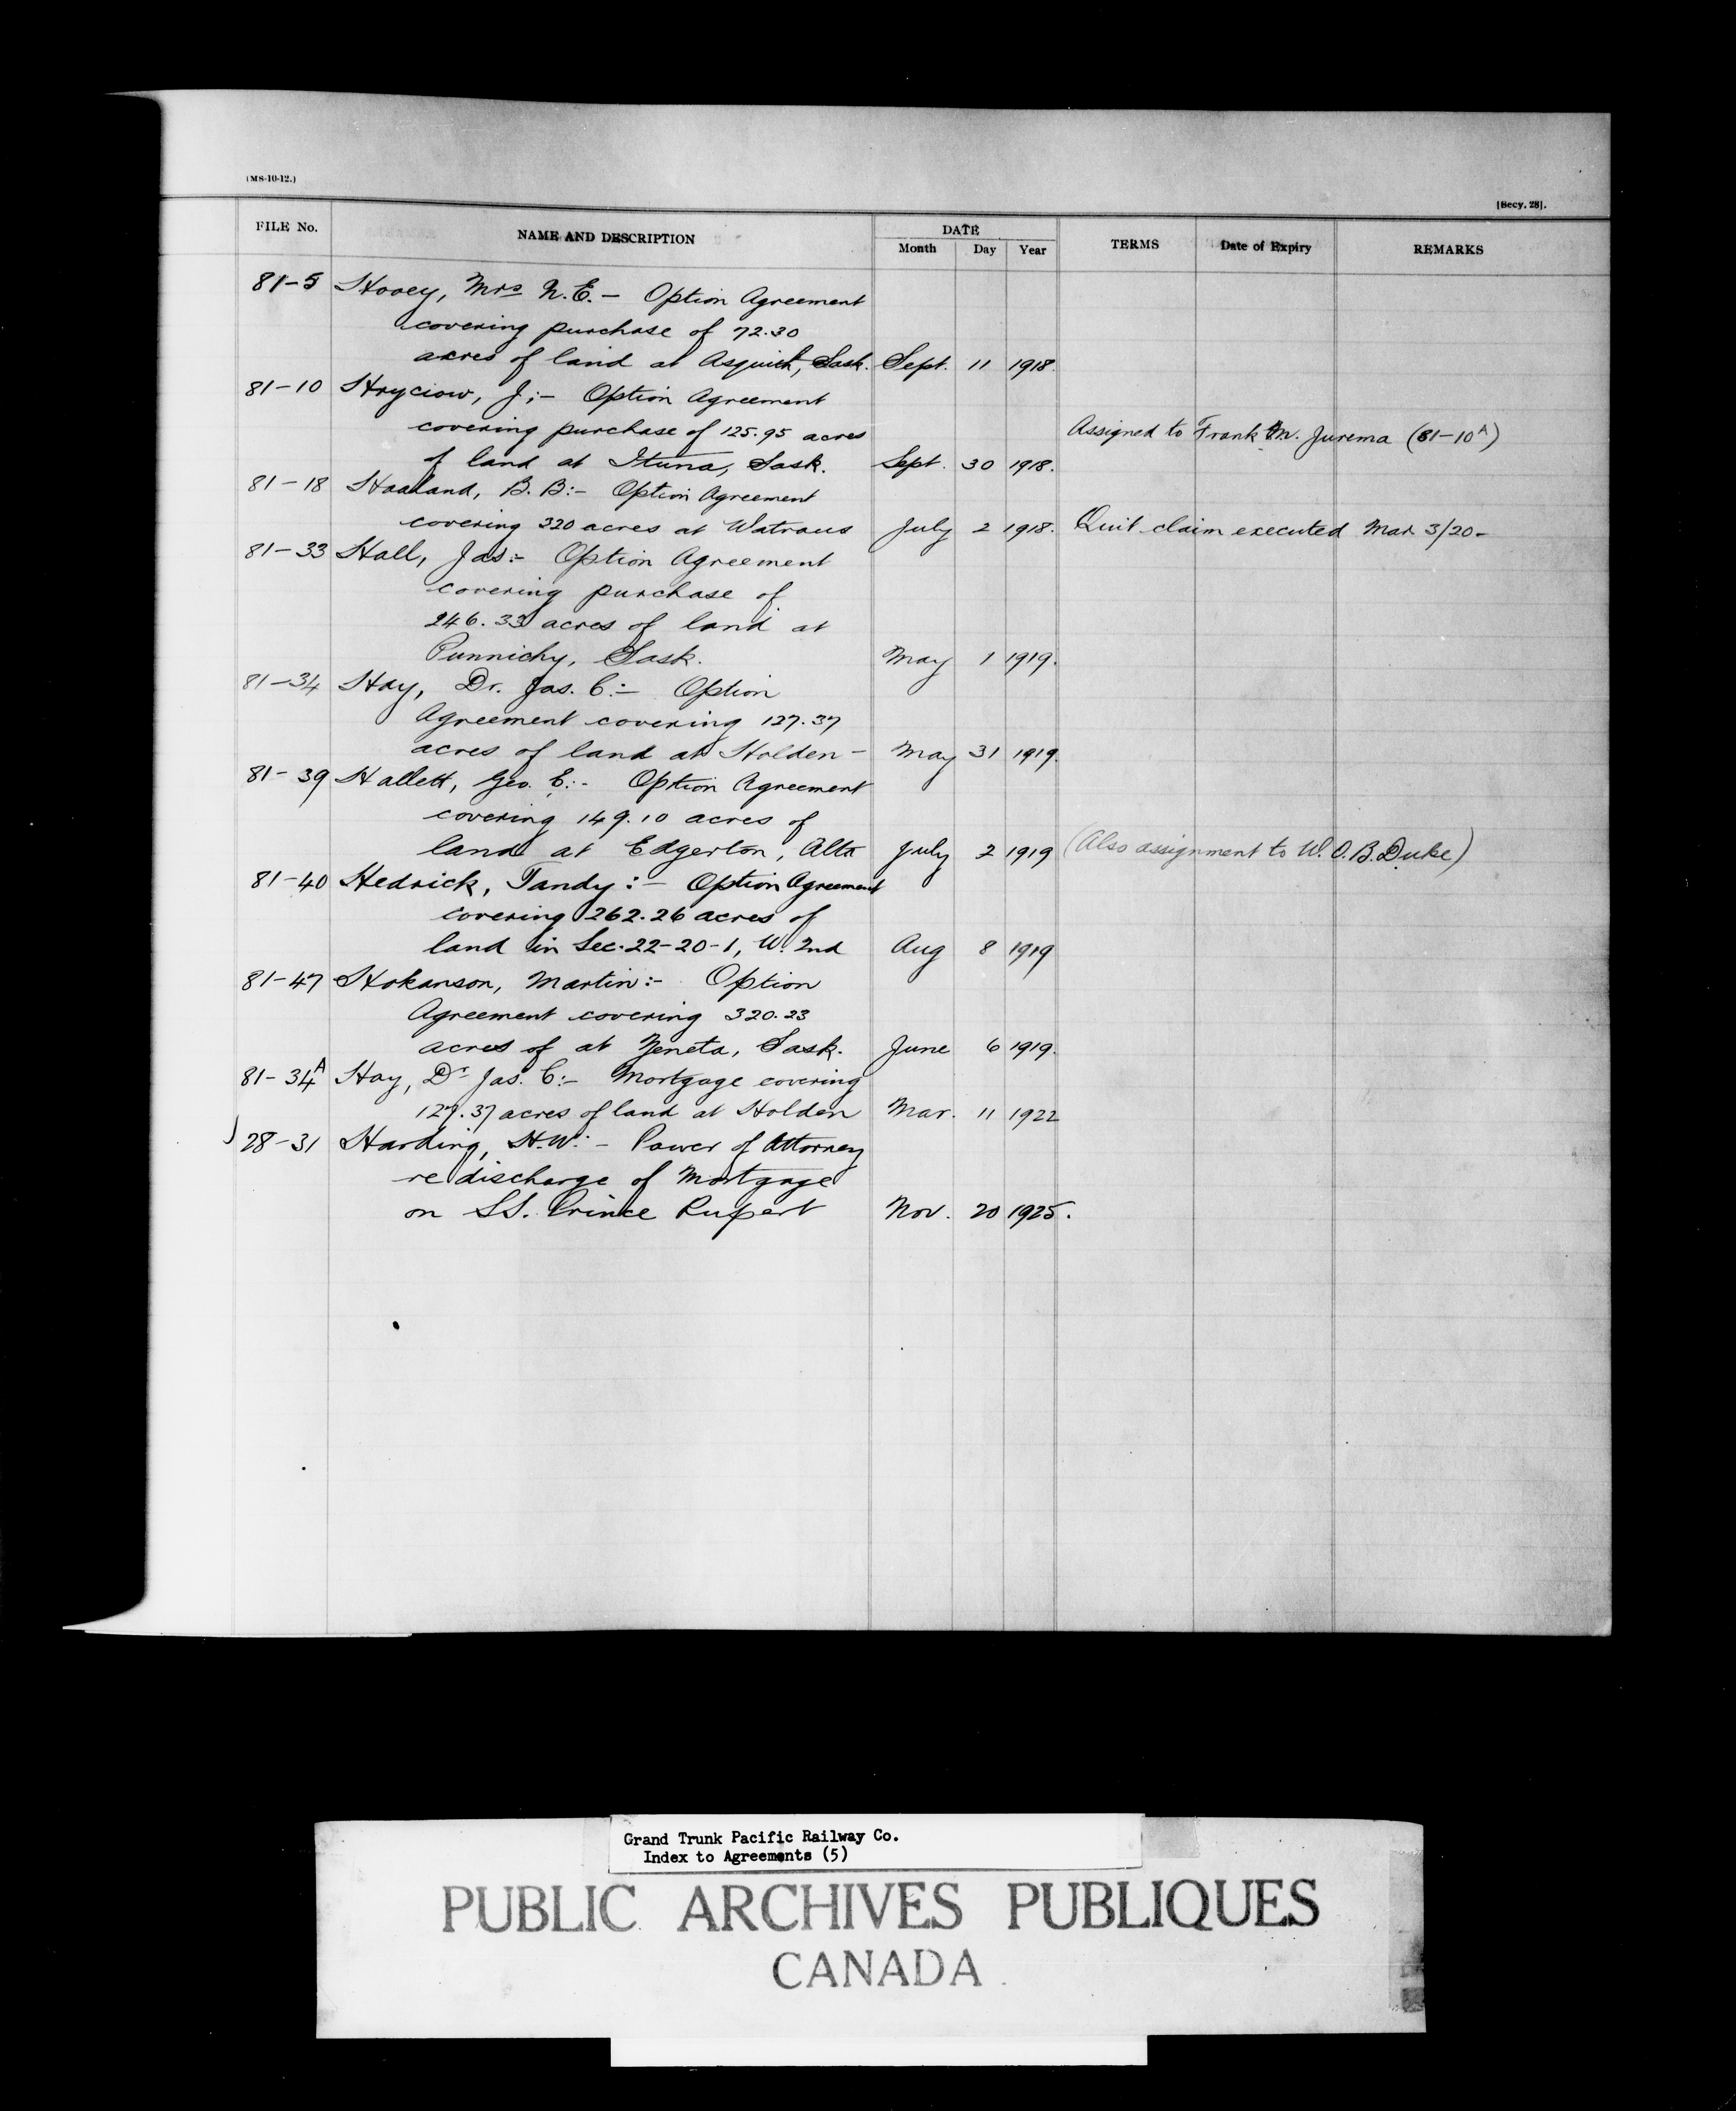 (MS-10-12.)
[Secy. 28].
FILE No. NAME AND DESCRIPTION DATE Month Day Year TERMS Date of Expiry REMARKS
81-5 Hovey, Mrs N.E. - Option Agreement
covering purchase of 72.30
acres of land at Asquith, Sask. Sept. 11 1918.
81-10 Hryciow, J;- Option Agreement
covering purchase of 125.95 acres Assigned to Frank M. Jurema (81-10A)
of land at Ituna, Sask. Sept. 30 1918.
81-18 Haaland, B.B:- Option Agreement
covering 320 acres at Watrous July 2 1918. Quit claim executed Mar 3/20-
81-33 Hall, Jas:- Option Agreement
covering purchase of
246.33 acres of land at
Punnichy, Sask. May 1 1919.
81-34 Hay, Dr. Jas. C:- Option
Agreement covering 127.37
acres of land at Holden - May 31 1919.
81-39 Hallett, Geo. E:- Option Agreement
covering 149.10 acres of
land at Edgerton, Alta July 2 1919 (Also assignment to W.O.B. Duke)
81-40 Hedrick, Tandy:- Option Agreement
covering 262.26 acres of
land in Sec. 22-20-1, W. 2nd Aug 8 1919
81-47 Hokanson, Martin:- Option
Agreement covering 320.23
acres of at Zeneta, Sask. June 6 1919.
81-34A Hay, Dr Jas. C:- Mortgage covering
127.37 acres of land at Holden Mar. 11 1922
28-31 Harding, H.W:- Power of Attorney
re discharge of Mortgage
on SS. Prince Rupert Nov. 20 1925.
Grand Trunk Pacific Railway Co.
Index to Agreements (5)
PUBLIC ARCHIVES PUBLIQUES
CANADA